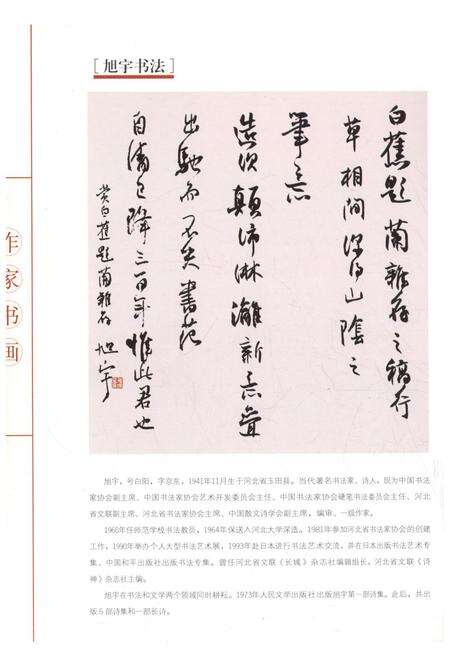 [旭宇书法]
白蕉题兰杂存之稿行
草相间深得山阴之
笔意
造次颠沛淋漓新意叠
出驰而不失书范
自清之降三百年惟此君也
赏白蕉题兰杂存 旭宇
作家书画
旭宇，号白阳，字京东，1941年11月生于河北省玉田县。当代著名书法家、诗人，现为中国书法
家协会副主席、中国书法家协会艺术开发委员会主任、中国书法家协会硬笔书法委员会主任、河北
省文联副主席、河北省书法家协会主席、中国散文诗学会副主席，编审、一级作家。
1960年任师范学校书法教员，1964年保送入河北大学深造。1981年参加河北省书法家协会的创建
工作，1990年举办个人大型书法艺术展，1993年赴日本进行书法艺术交流，并在日本出版书法艺术专
集、中国和平出版社出版书法专集。曾任河北省文联《长城》杂志社编辑组长、河北省文联《诗
神》杂志社主编。
旭宇在书法和文学两个领域同时耕耘。1973年人民文学出版社出版旭宇第一部诗集。此后，共出
版５部诗集和一部长诗。